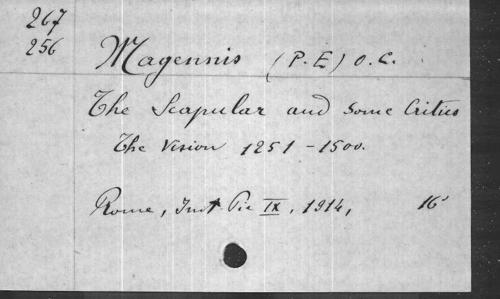 267
256
Magennis (P. E) O. C.
The Scapular and Some Critics
The Vision 1251 - 1500.
Rome, Inst Pie IX, 1914, 16°